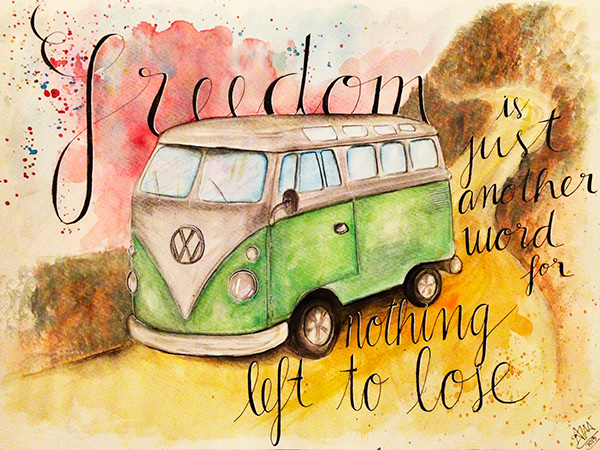 freedom
is
just
another
word
for
nothing
left to lose
VW